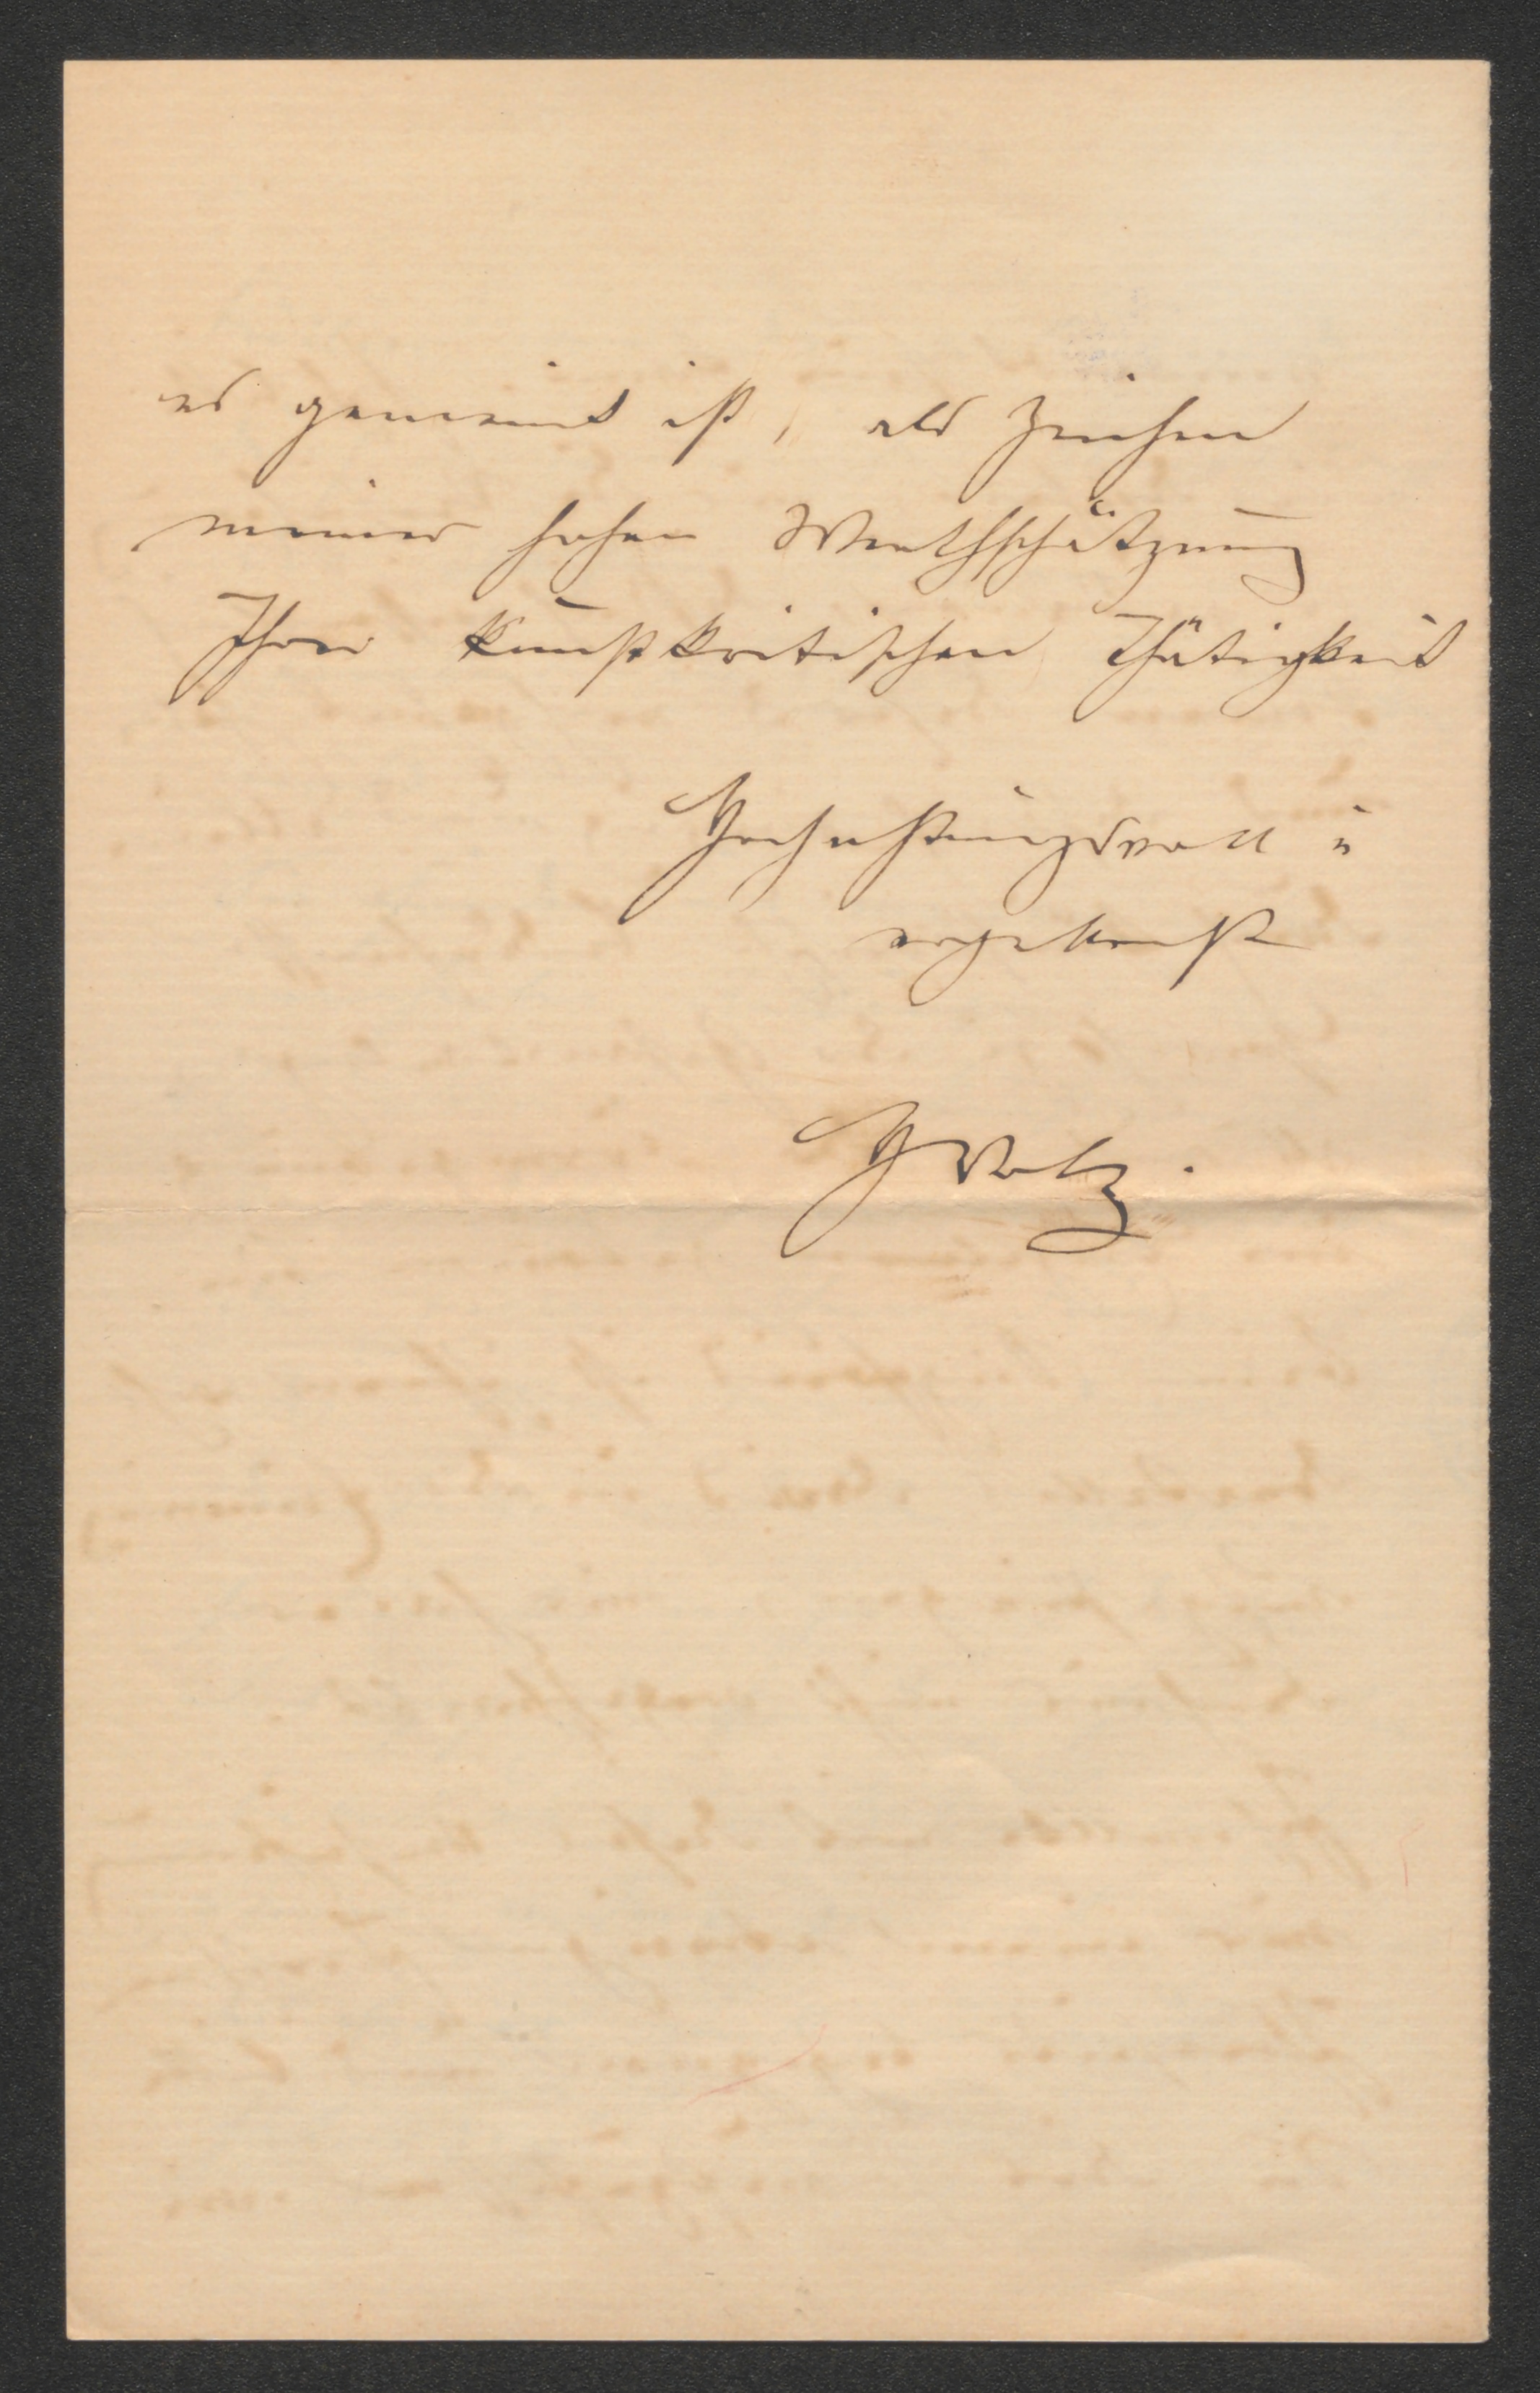 es gemeint ist, als Zeichen
meiner hohen Werthschätzung
Ihrer kunstkritischen Thätigkeit
Hochachtungsvoll u
ergebenst
HVolz.